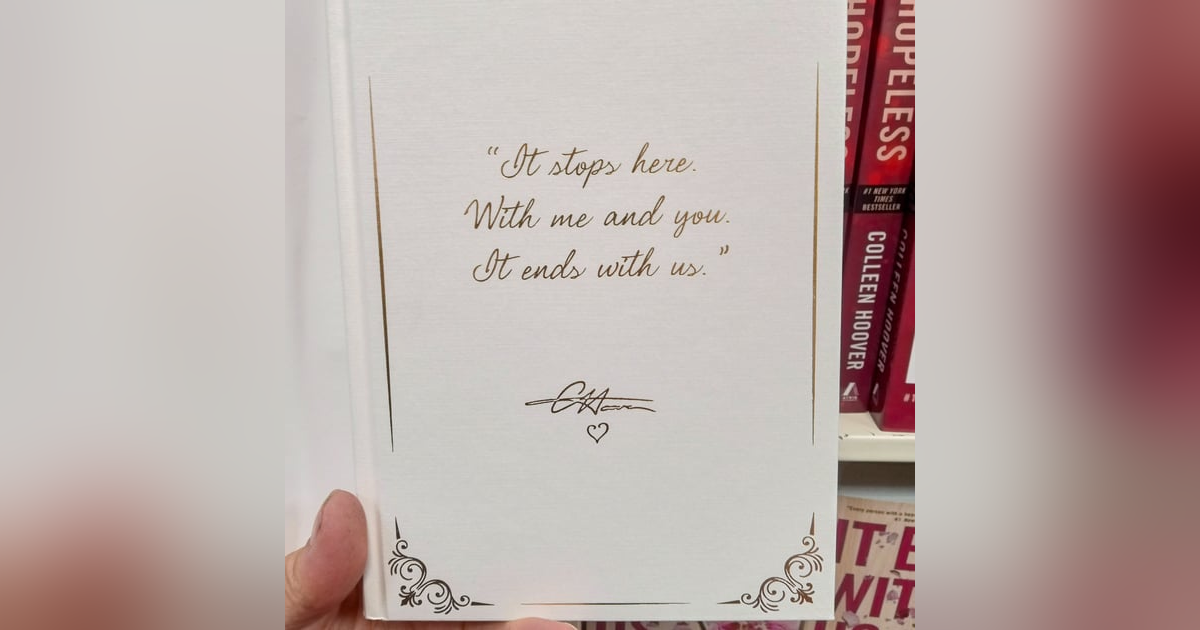 “It stops here.
With me and you.
It ends with us.”
HOPELESS
#1 NEW YORK
TIMES
BESTSELLER
COLLEEN HOOVER
HOPELESS
COLLEEN HOOVER
IT E
WIT